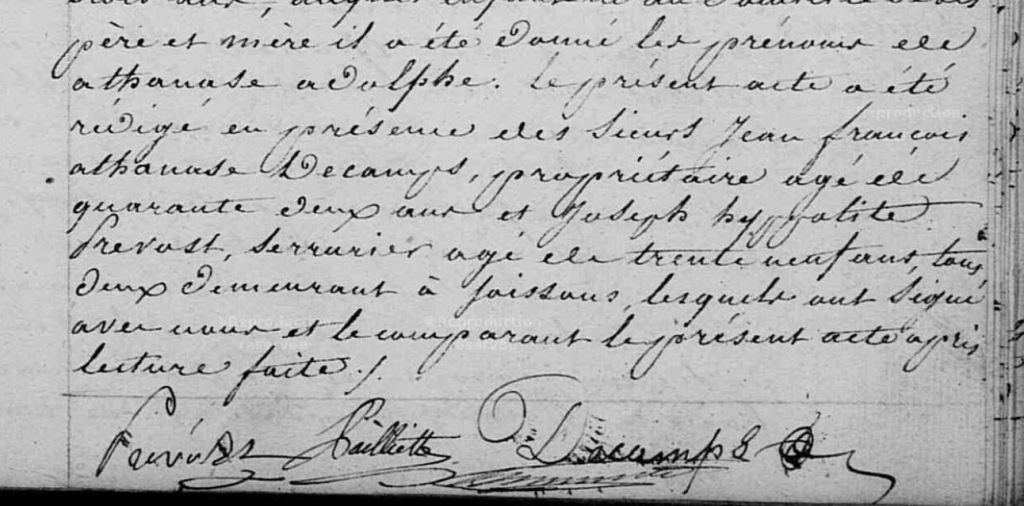 père et mère il a été donné les prénoms de
athanase adolphe. le présent acte a été
rédigé en présence des sieurs Jean françois
athanase Decamps, propriétaire agé de
quarante deux ans et Joseph hyppolite
Prevost, serrurier agé de trente neuf ans, tous
deux demeurant à Soissons, lesquels ont signé
avec nous et le comparant le présent acte après
lecture faite ./.
Prévost Pailliette Decamps